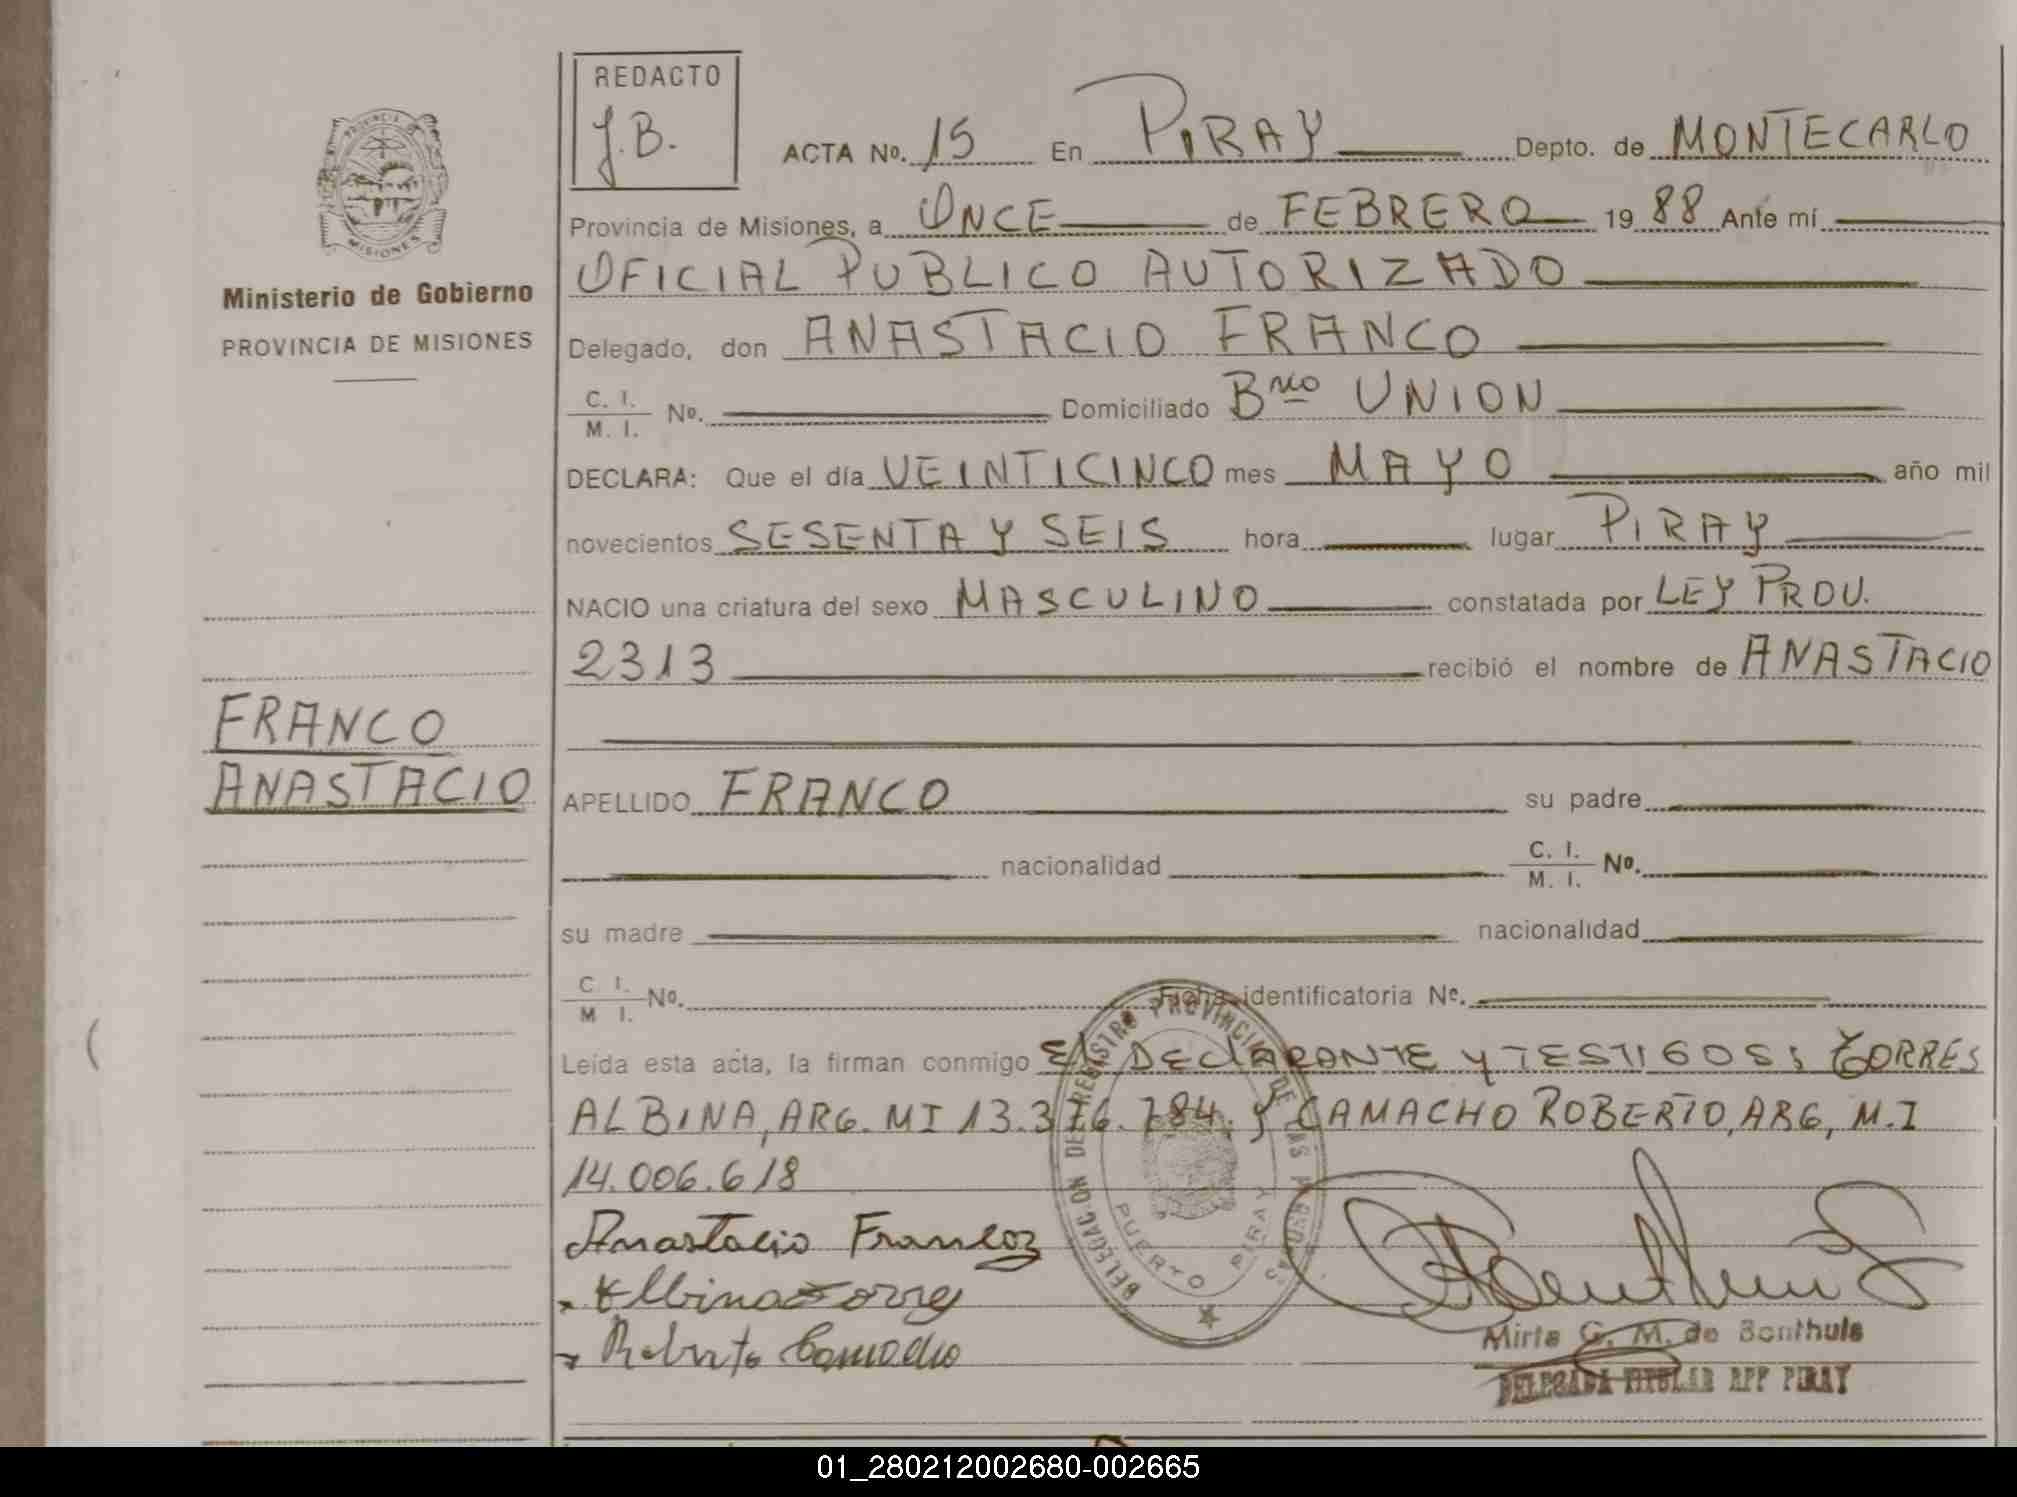 REDACTO
J.B.
PROVINCIA DE
MISIONES
Ministerio de Gobierno
PROVINCIA DE MISIONES
FRANCO
ANASTACIO
ACTA No. 15 En PIRAY Depto. de MONTECARLO
Provincia de Misiones, a ONCE de FEBRERO 19 88 Ante mí
OFICIAL PUBLICO AUTORIZADO
Delegado, don ANASTACIO FRANCO
C. I. / M. I. No. Domiciliado Brrio UNION
DECLARA: Que el día VEINTICINCO mes MAYO año mil
novecientos SESENTA Y SEIS hora lugar PIRAY
NACIO una criatura del sexo MASCULINO constatada por LEY PROV.
2313 recibió el nombre de ANASTACIO
APELLIDO FRANCO su padre
nacionalidad C. I. / M. I. No.
su madre nacionalidad
C I. / M I. No. Ficha identificatoria No.
Leída esta acta, la firman conmigo El DEClARANTE y TESTIGOS; TORRES
ALBINA, ARG. MI 13.376.784. y CAMACHO ROBERTO, ARG, M.I
14.006.618
Anastacio Francoz
Albina Torres
Roberto Camacho
DELEGACION DEL REGISTRO PROVINCIAL DE LAS PERSONAS
PUERTO PIRAY
Mirta G. M. de Bonthuis
DELEGADA TITULAR RPP PIRAY
01_280212002680-002665